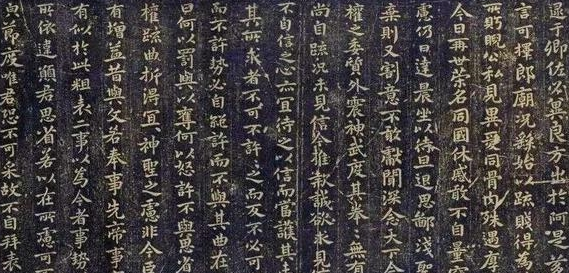 逮于卿佐必冀良方出於阿是芻
言可擇郎廟況繇始以疏賤得為
所盱睨公私見異愛同骨肉殊遇厚
今日再世榮名同國休慼敢不自量
慮仍日達晨坐以待旦退思鄙淺
棄則又割意不敢獻聞深念天下今
權之委質外震神武度其拳拳無有
尚自疏況未見信今推款誠欲求見
不自信之心亦宜待之以信而當護其未
其所求者不可不許許之而反不必可
而不許勢必自絕許而不與其曲在
曰何以罰與以奪何以怒許不與思省
權疏曲折得宜宜神聖之慮非今臣
有增益昔與文若奉事先帝事
有似於此粗表二事以為今者事勢
所依違願君思省若以在所慮可不
節度唯君恐不可采故不自拜表